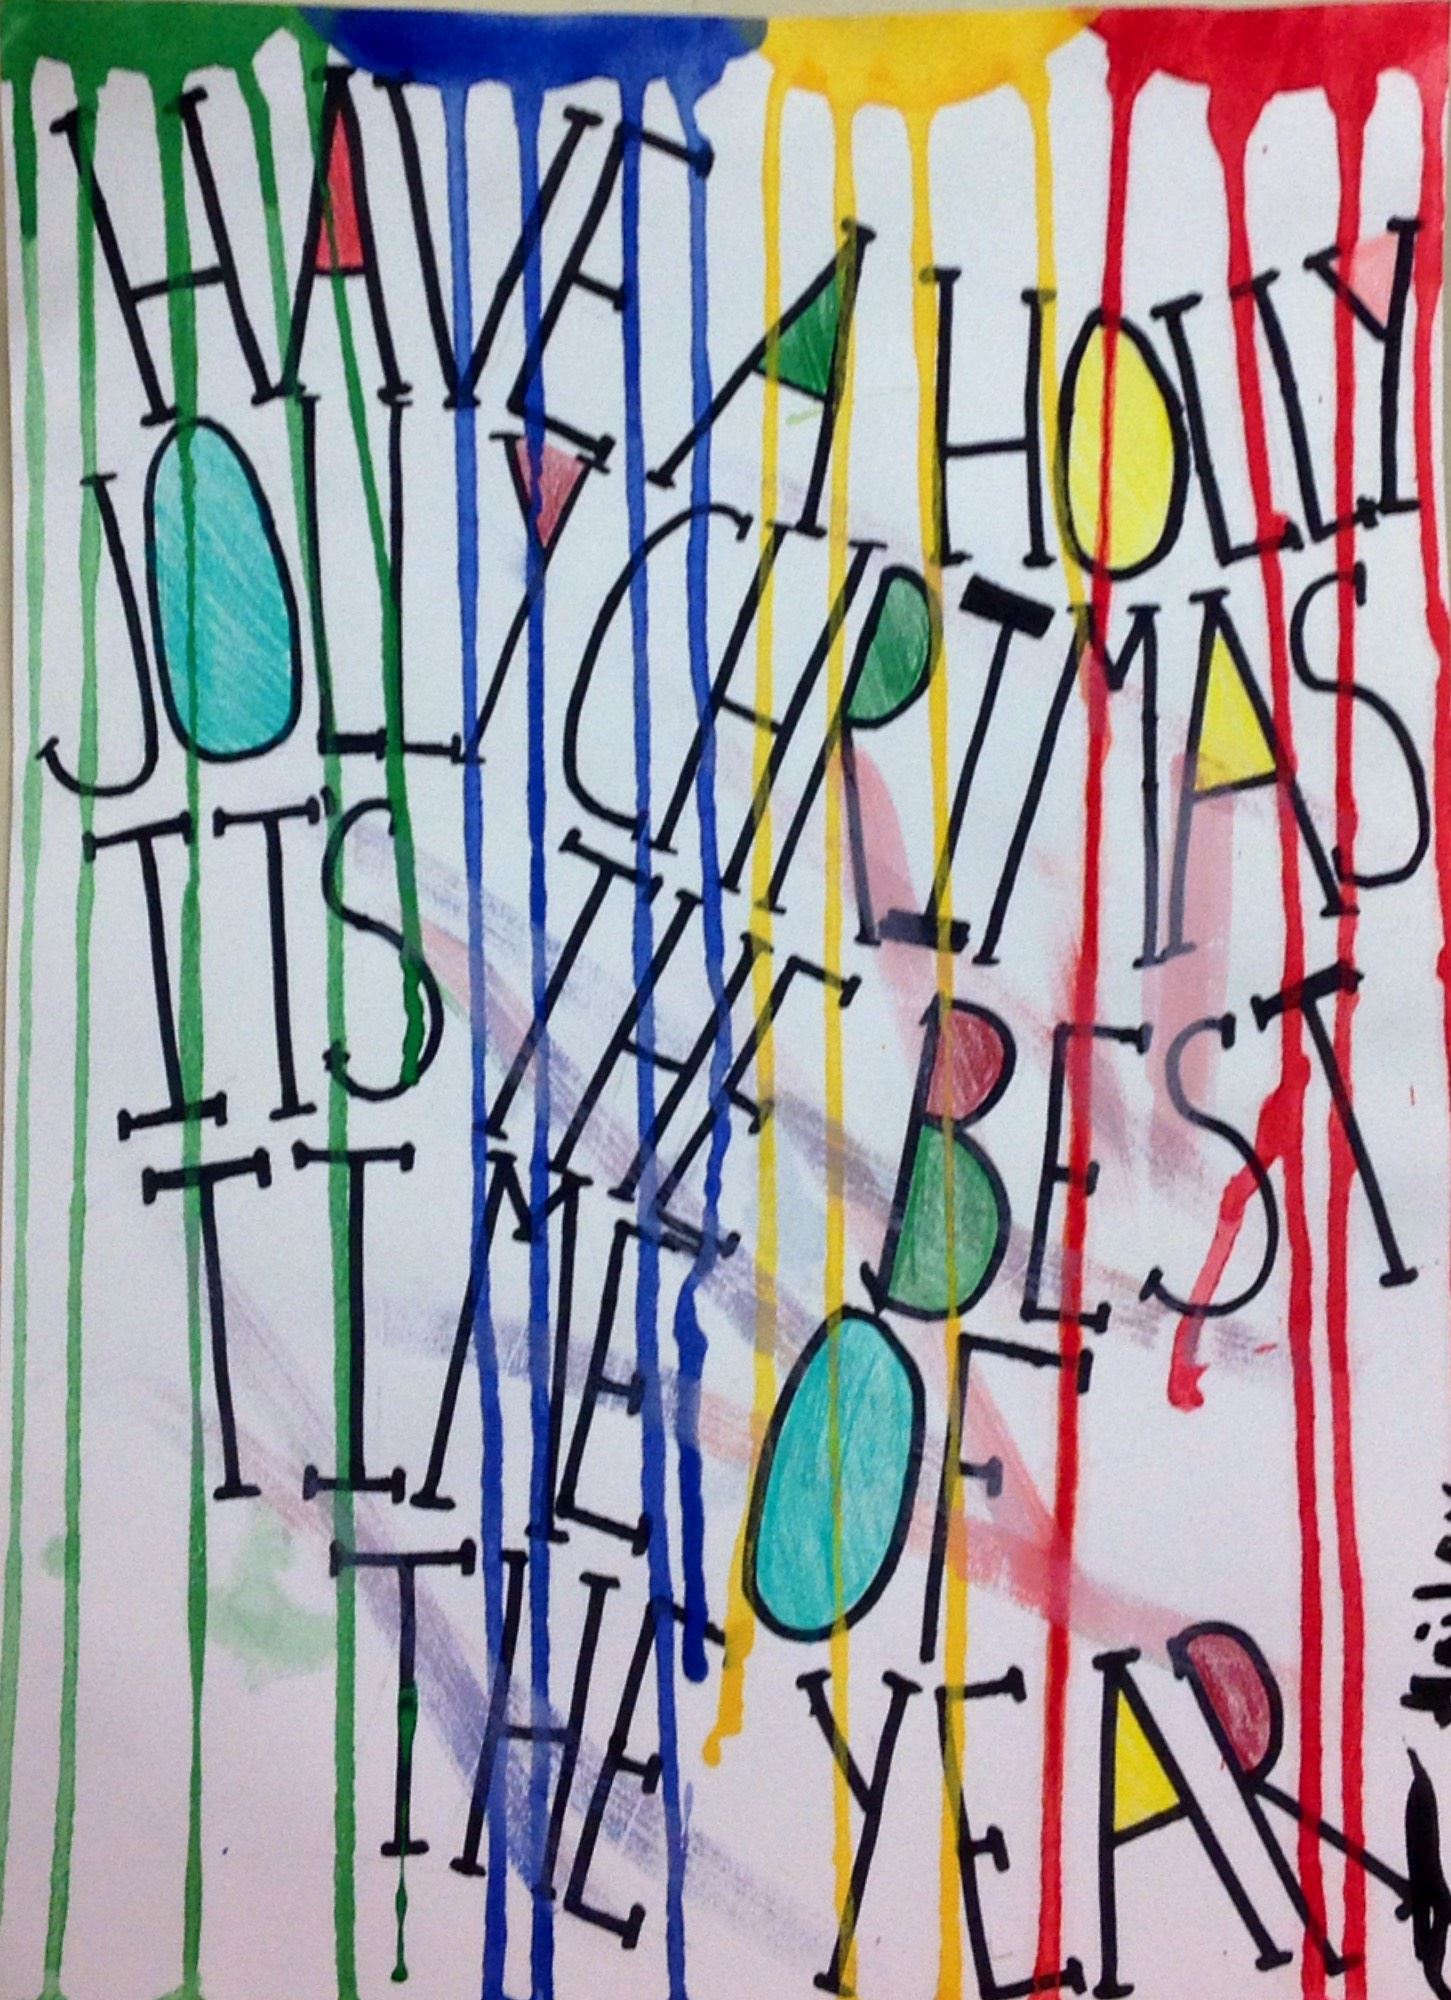 HAVE A HOLLY
JOLLY CHRIMAS
IT'S THE BEST
TIME OF
THE YEAR